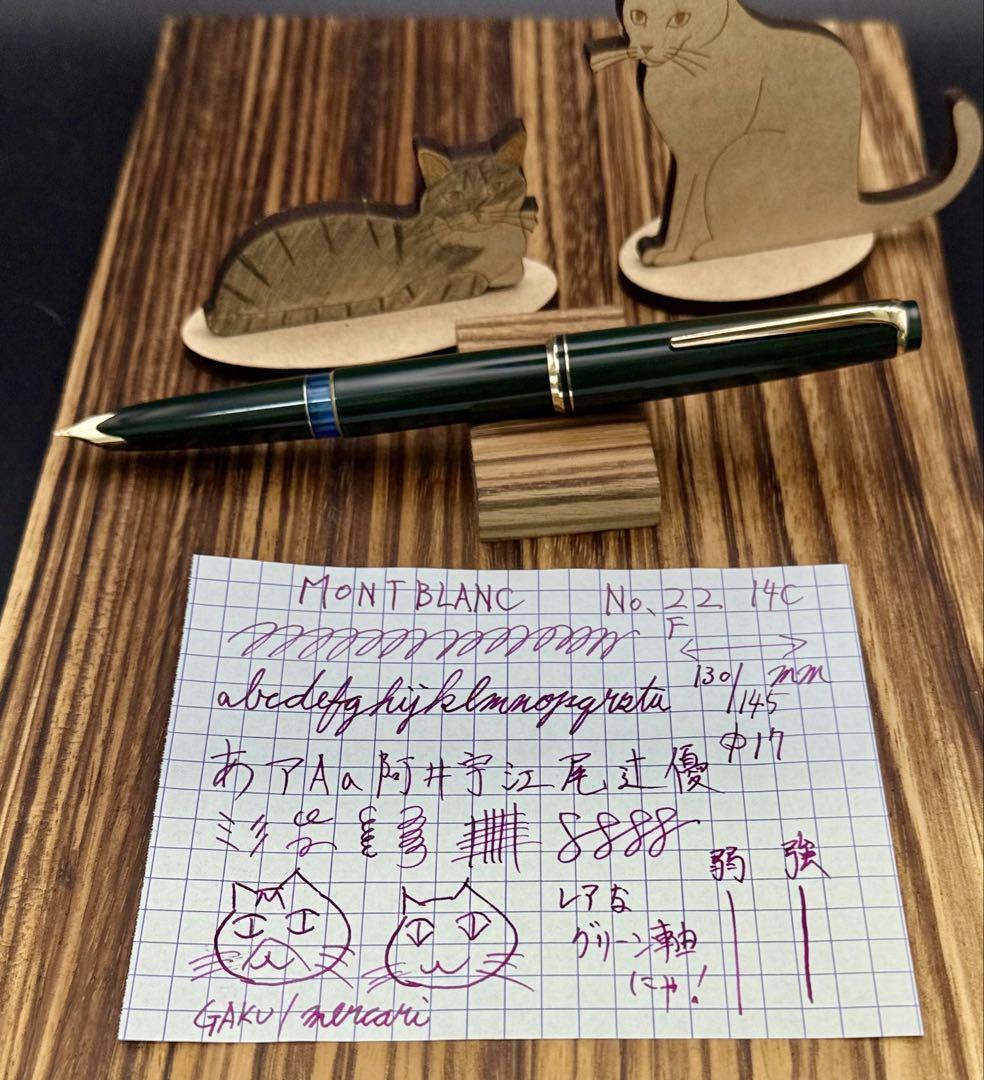 MONTBLANC No. 22 14C
F
130/145 mm
abcdefghijklmnopqrstu
φ17
あアAa阿井宇江尾辻優
ミ
8888
弱 強
レアな
グリーン軸
にゃ!
GAKU/mercari